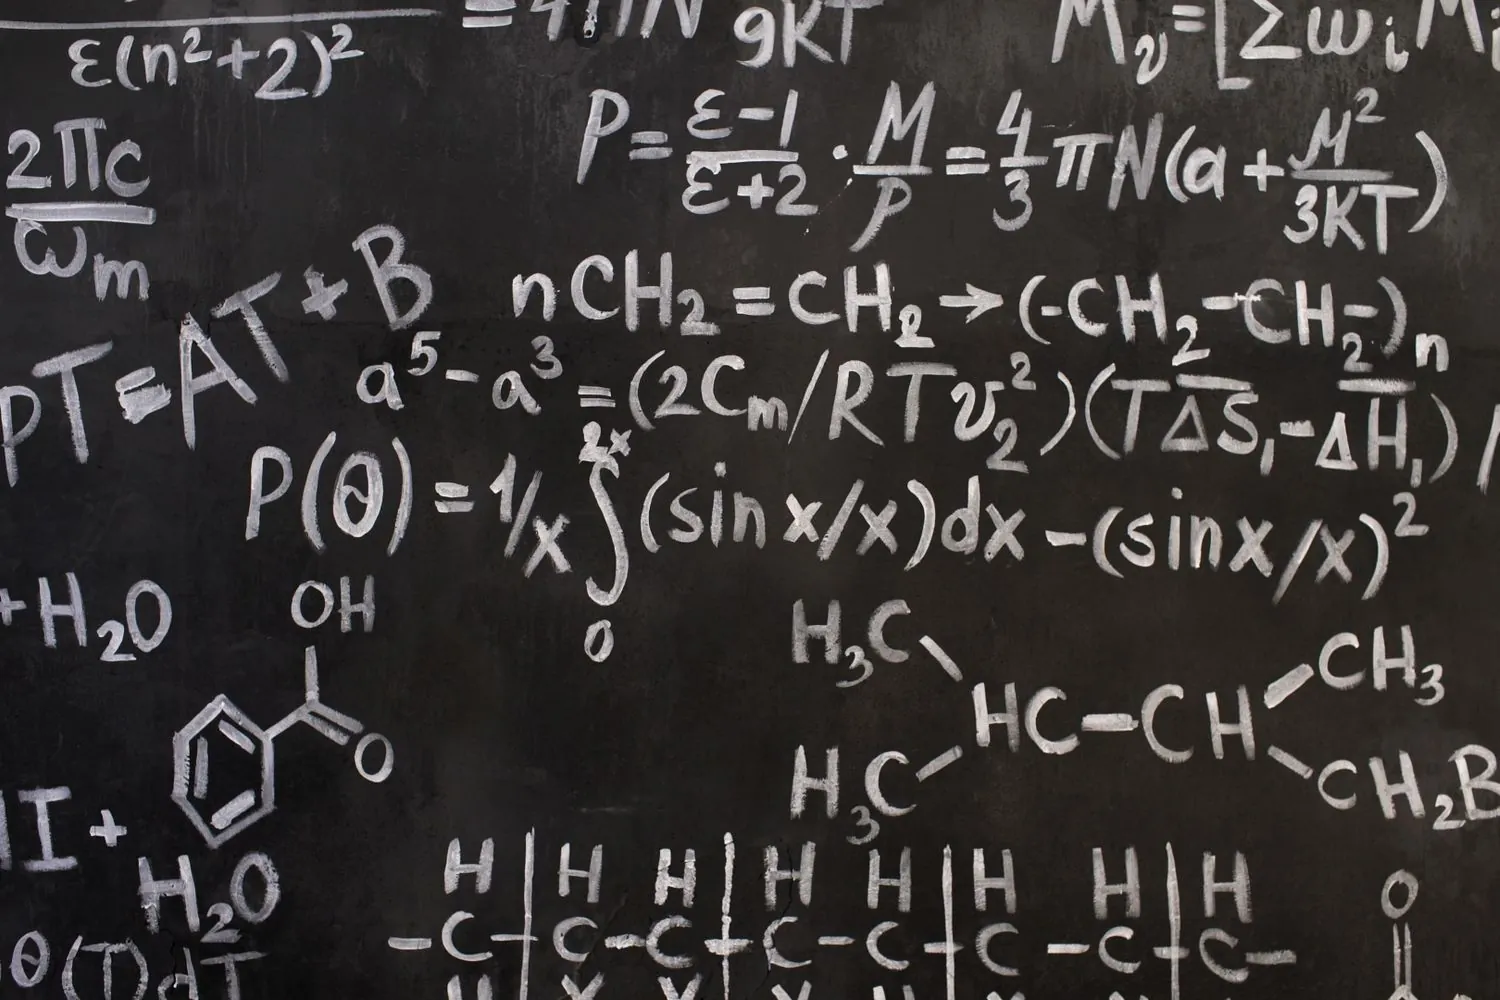 ε(n²+2)²
9KT
M_v=[Σω_i M_i
P=(ε-1)/(ε+2)·M/P=4/3πN(a+M²/3KT)
2πc/ω_m
PT=AT+B
nCH₂=CH₂→(-CH₂-CH₂-)n
a⁵-a³=(2Cm/RTv₂²)(TΔS̅₁-ΔH̅₁)
P(θ)=1/x∫₀²ˣ(sin x/x)dx-(sinx/x)²
+H₂O
OH
O
H₃C
CH₃
HC-CH
H₃C
CH₂B
I+
H₂O
H H H H H H H H
-C C-C C-C C-C C-
O
θ(T)dT